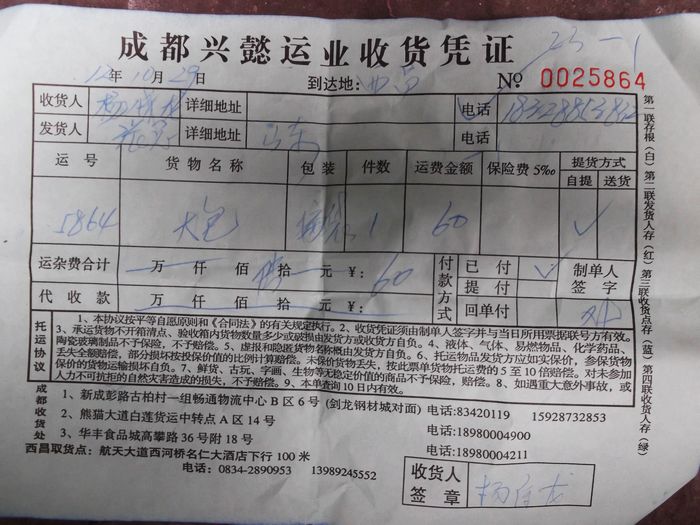 成都兴懿运业收货凭证
23-1
12年10月29日 到达地:西昌 № 0025864
收货人 详细地址 电话
发货人 详细地址 电话
运号 货物名称 包装 件数 运费金额 保险费5‰ 提货方式
自提 送货
5864 大包 1 60 ✓
运杂费合计 万 仟 佰 拾 元 ¥: 60 付款方式 已付 ✓ 制单人签字
提付
代收款 万 仟 佰 拾 元 ¥: 回单付
托运协议
1、本协议按平等自愿原则和《合同法》的有关规定执行。2、收货凭证须由制单人签字并与当日所用票据联号方有效。
3、承运货物不开箱清点、验收箱内货物数量多少或破损由发货方或收货方自负。4、液体、气体、易燃物品、化学药品、
陶瓷玻璃制品不予保价,不予赔偿。5、虚报和隐匿货物名称概由发货方自负。6、托运物品发货方应如实保价,参保货物
丢失全额赔偿,部分损坏按投保价值的比例计算赔偿。未保价货物丢失,按此票单货物托运费的5至10倍赔偿。对未参加
保价的货物运输损坏自负。7、鲜货、古玩、字画、生物等无稳定价值的商品不予保价,赔偿。8、如遇重大意外事故,或
人力不可抗拒的自然灾害造成的损失,不予赔偿。9、本单查询10日内有效。
成都收货处
1、新成彭路古柏村一组畅通物流中心B区6号(剑龙钢材城对面) 电话:83420119 15928732853
2、熊猫大道白莲货运中转点A区14号 电话:18980004900
3、华丰食品城高攀路36号附18号 电话:18980004211
西昌取货点:航天大道西河桥名仁大酒店下行100米
电话:0834-2890953 13989245552
收货人签章
第一联存根(白)第二联发货人存(红)第三联收货点存(蓝)第四联收货人存(绿)